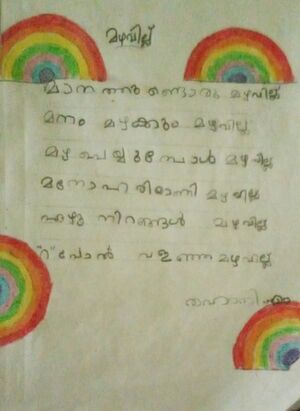 മഴവില്ല്
മാനത്തുണ്ടൊരു മഴവില്ല്
മനം മയക്കും മഴവില്ല്
മഴ പെയ്യുമ്പോൾ മഴവില്ല്
മനോഹരിയാണീ മഴവില്ല്
ഏഴു നിറങ്ങൾ മഴവില്ല്
"റ" പോൽ വളഞ്ഞ മഴവില്ല്